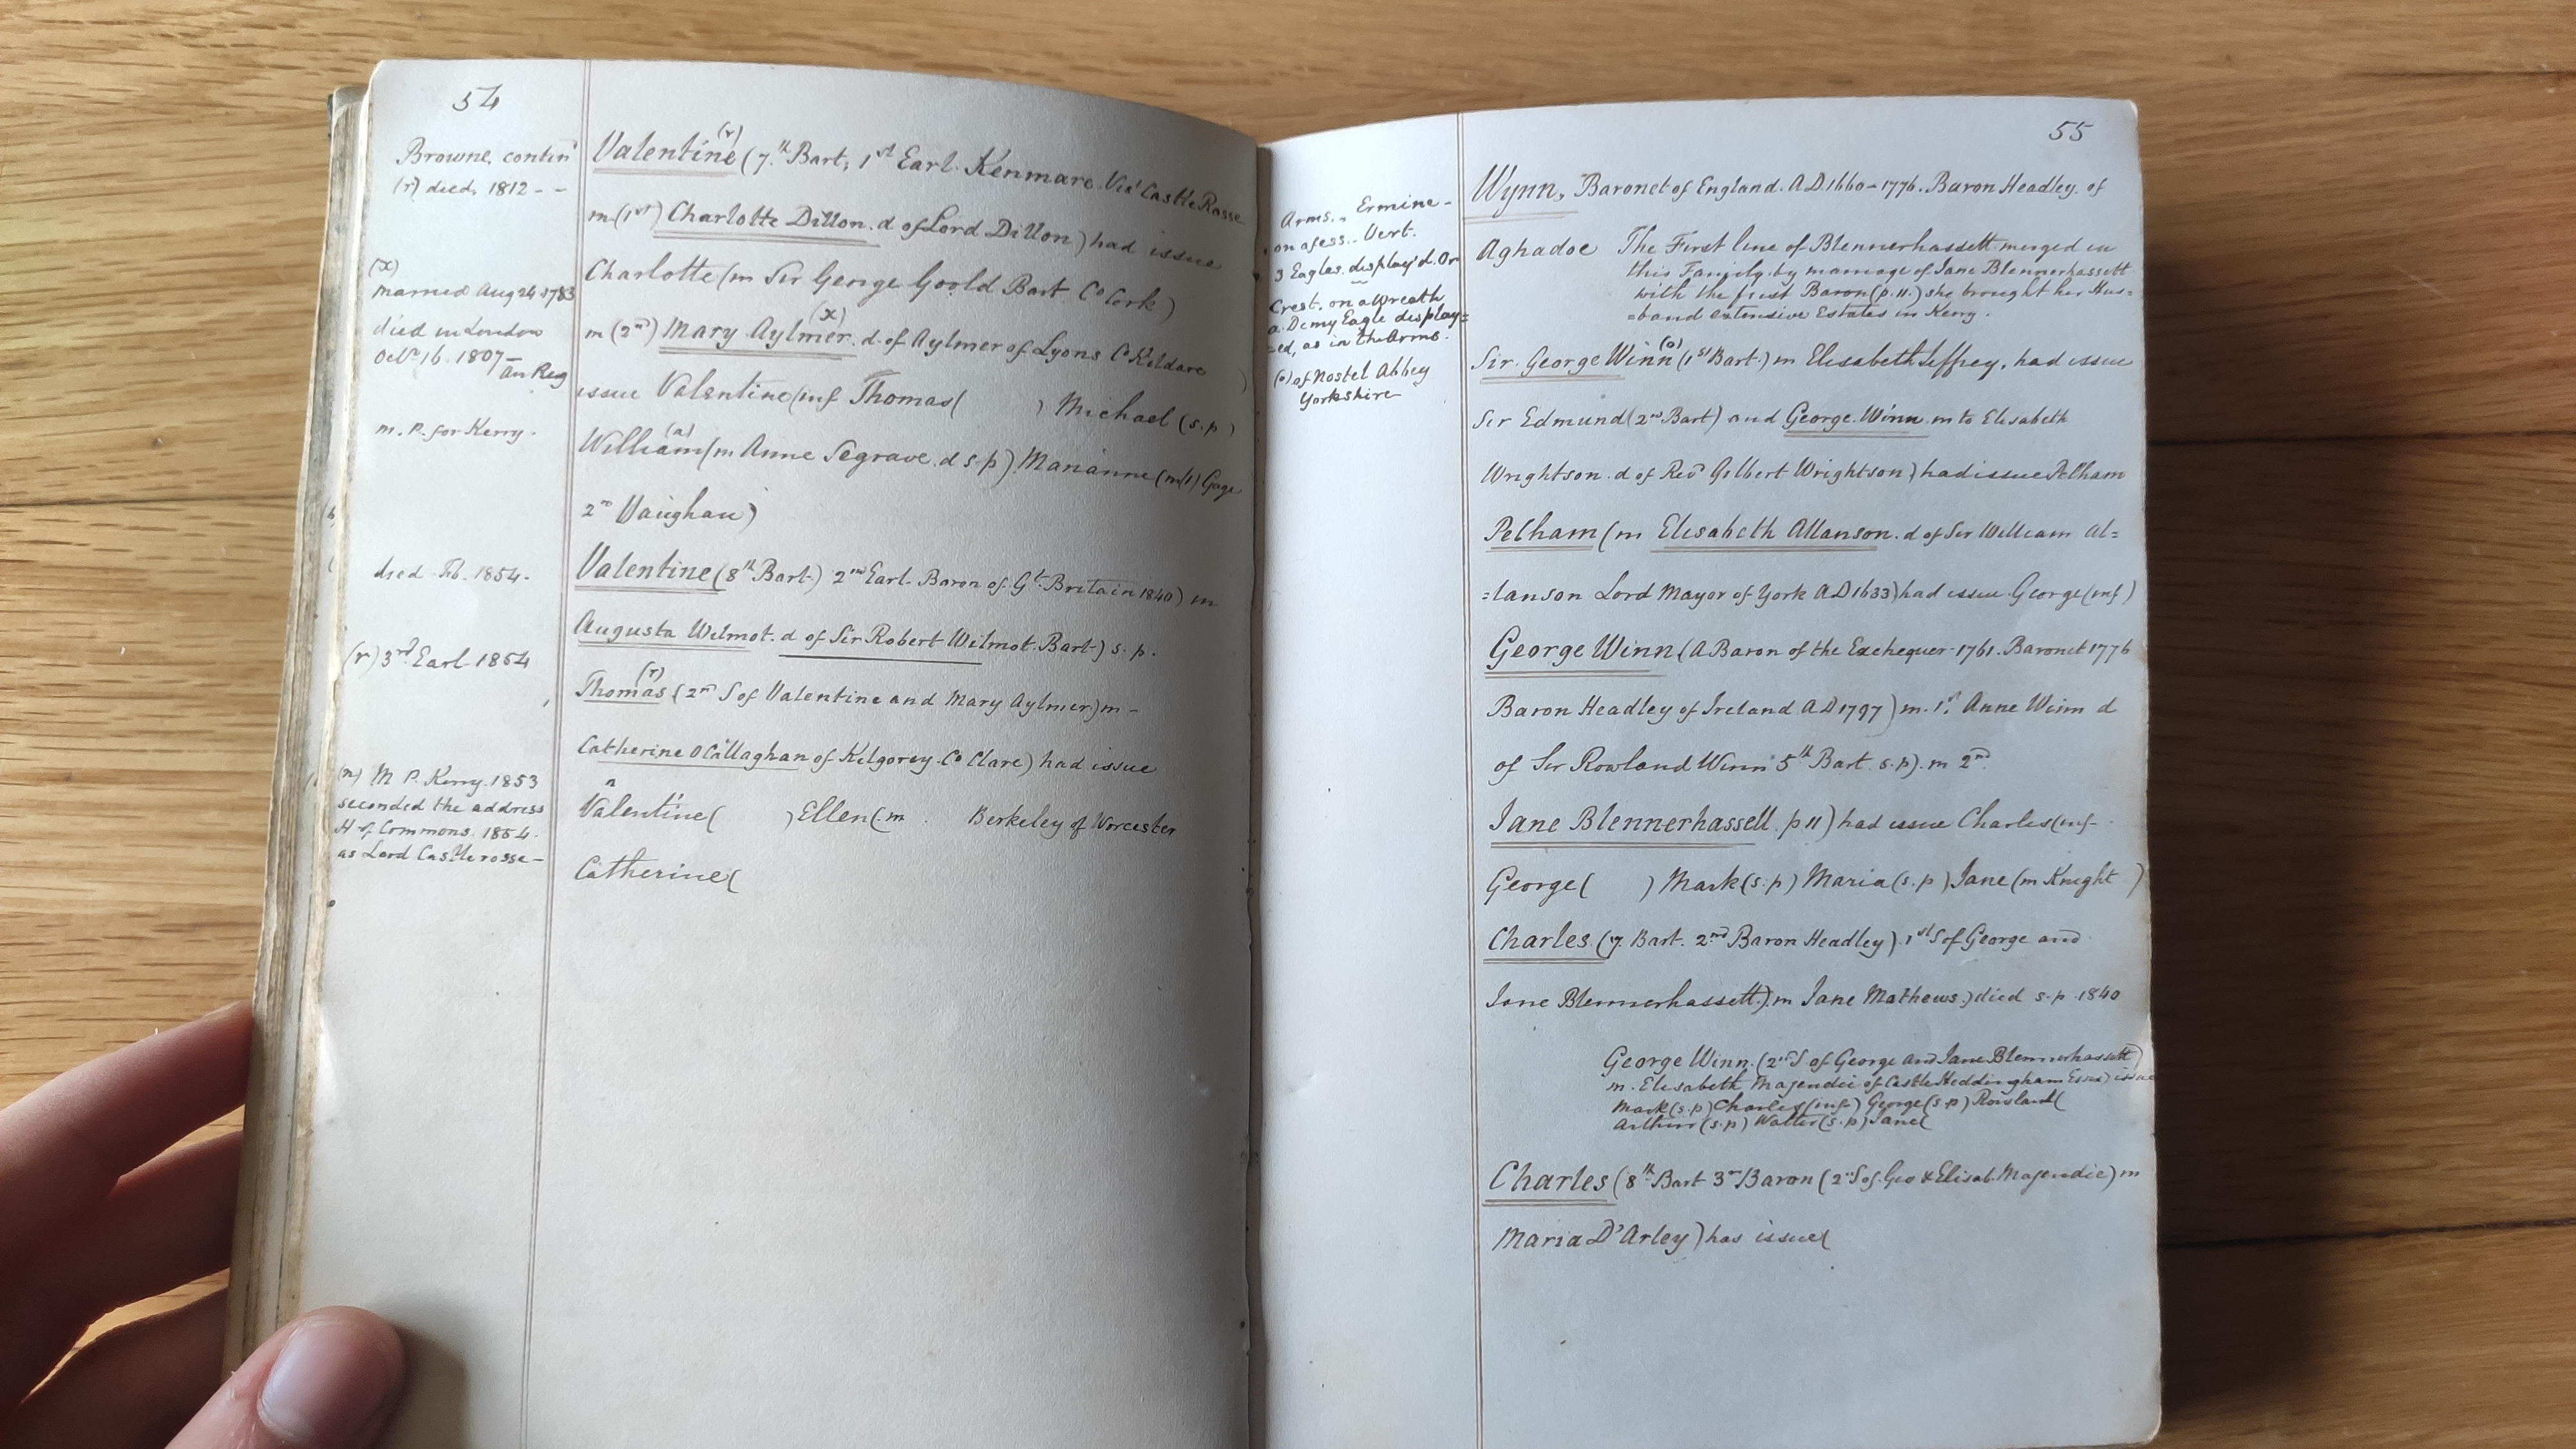 54
Browne, contin^d
(r) died, 1812 - -
(x)
married Aug 24 1783
died in London
Oct^r 16. 1807 –
An Reg
m. P. for Kerry.
died Feb. 1854.
(r) 3^rd Earl 1854
(n) M P. Kerry. 1853
seconded the address
H of Commons. 1854.
as Lord Castlerosse –
Valentine (r) (7.^th Bart, 1^st Earl. Kenmare. Vis^t Castle Rosse
m (1^st) Charlotte Dillon. d of Lord Dillon) had issue
Charlotte (m Sir George Goold Bart. C^o Cork)
m (2^nd) Mary Aylmer (x). d. of Aylmer of Lyons C^o Kildare )
issue Valentine (inf Thomas( ) Michael (s.p)
William (a) (m Anne Segrave. d s.p). Marianne (m (1) Gage
2^nd Vaughan)
Valentine (8^th Bart.) 2^nd Earl. Baron of G^t. Britain 1840) m
Augusta Wilmot. d of Sir Robert Wilmot. Bart) s. p.
Thomas (r) (2^nd S of Valentine and Mary Aylmer) m –
Catherine O'Callaghan of Kilgorey. C^o Clare) had issue
Valentine n ( ) Ellen (m . Berkeley of Worcester
Catherine (
55
Arms. Ermine –
on a fess. Vert.
3 Eagles. display'd. Or
Crest. on a Wreath
a. Demy Eagle display=
=ed, as in the Arms.
(o) of Nostel Abbey
Yorkshire
Wynn, Baronet of England. A D 1660 – 1776. Baron Headley. of
Aghadoe The First line of Blennerhassett merged in
this Family. by marriage of Jane Blennerhassett
with the first Baron (p. 11.) she brought her Hus=
=band extensive Estates in Kerry.
Sir. George Winn (o) (1^st Bart.) m Elisabeth Jeffrey, had issue
Sir Edmund (2^nd Bart) and George. Winn. m to Elisabeth
Wrightson. d of Rev^d Gilbert Wrightson) had issue Pelham
Pelham (m Elisabeth Allanson. d of Sir William Al=
=lanson Lord Mayor of York A D 1633) had issue George (inf)
George Winn (A Baron of the Exchequer. 1761. Baronet 1776
Baron Headley of Ireland A D 1797) m. 1^st. Anne Winn d
of Sir Rowland Winn 5^th Bart. s.p). m 2^nd
Jane Blennerhassett. p 11) had issue Charles (inf –
George ( ) Mark (s.p) Maria (s.p) Jane (m Knight )
Charles (7. Bart. 2^nd Baron Headley) 1^st S of George and
Jane Blennerhassett). m Jane Mathews.) died s.p. 1840
George Winn. (2^nd S of George and Jane Blennerhassett)
m. Elisabeth Majendie of Castle Heddingham Essex) issue
Mark (s.p) Charles (inf) George (s.p) Rowland (
Arthur (s.p) Walter (s.p) Jane (
Charles (8^th Bart 3^rd Baron (2^nd S of. Geo & Elisab. Majendie) m
Maria D'Arley) has issue (